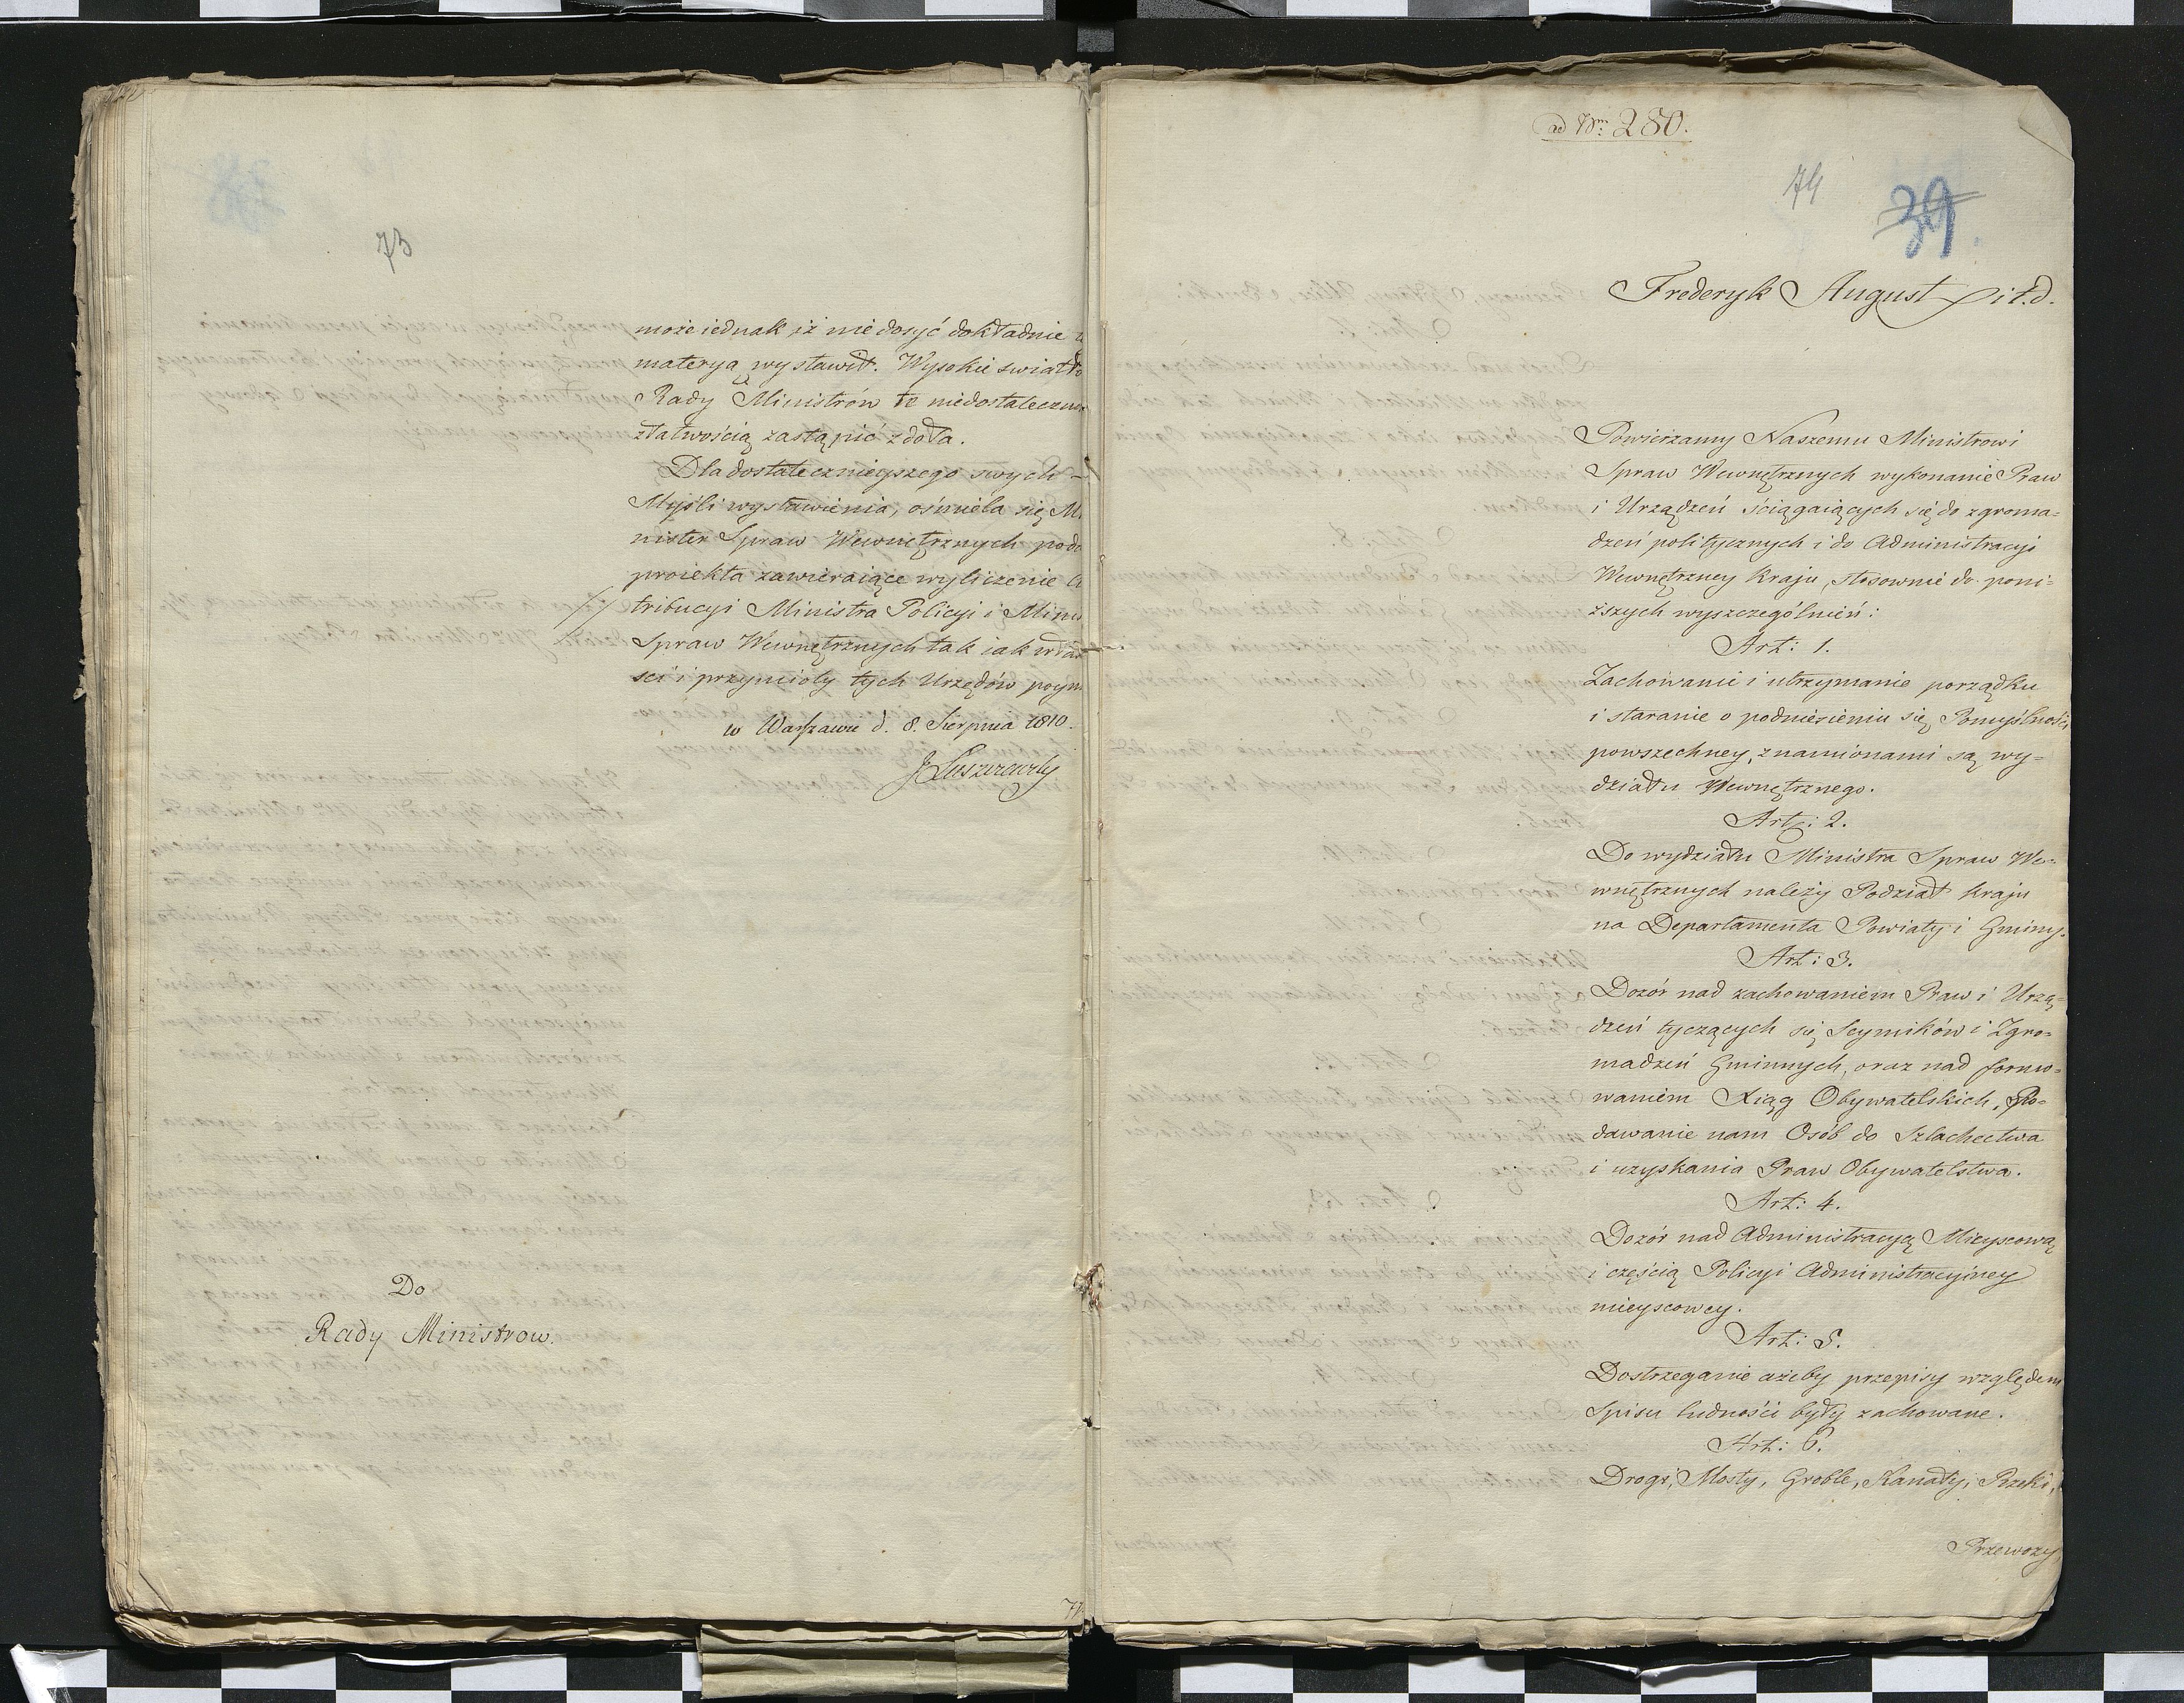 73
może iednak iż nie dosyć dokładnie
materyą wystawił. Wysokie swiatło
Rady Ministrów te niedostateczno
złatwością zastąpić zdoła.
Dla dostatecznieyszego swych -
Myśli wystawienia, ośmiela się Mi
nister Spraw Wewnętrznych poda
proiekta zawieraiące wyliczenie At
tribucyi Ministra Policyi i Minis
Spraw Wewnętrznych tak iak wła
sci i przymioty tych Urzędów poym
w Warszawie d. 8. Sierpnia 1810.
J Łuszczewski
Do
Rady Ministrow.
ad Num 280.
74
39
Frederyk August p i t. d.
Powierzamy Naszemu Ministrowi
Spraw Wewnętrznych wykonanie Praw
i Urządzeń ściągaiących się do zgroma=
dzeń politycznych i do Administracyi
Wewnętrzney Kraju, stosownie do poni=
ższych wyszczególnień:
Art: 1.
Zachowanie i utrzymanie porządku
i staranie o podniesieniu się Pomyślności
powszechney, znamionami są wy=
działu Wewnętrznego.
Art: 2.
Do wydziału Ministra Spraw We=
wnętrznych należy Podział Kraju
na Departamenta Powiaty i Gminy.
Art: 3.
Dozór nad zachowaniem Praw i Urzą=
dzeń tyczących się Seymików i Zgro=
madzeń Gminnych, oraz nad formo=
waniem Xiąg Obywatelskich, Po=
dawanie nam Osób do Szlachectwa
i uzyskania Praw Obywatelstwa.
Art: 4.
Dozór nad Administracyą Mieyscową
i częścią Policyi Administracyiney
mieyscowey.
Art: 5.
Dostrzeganie ażeby przepisy względem
Spisu ludności były zachowane.
Art: 6.
Drogi, Mosty, Groble, Kanały, Rzeki,
Przewozy